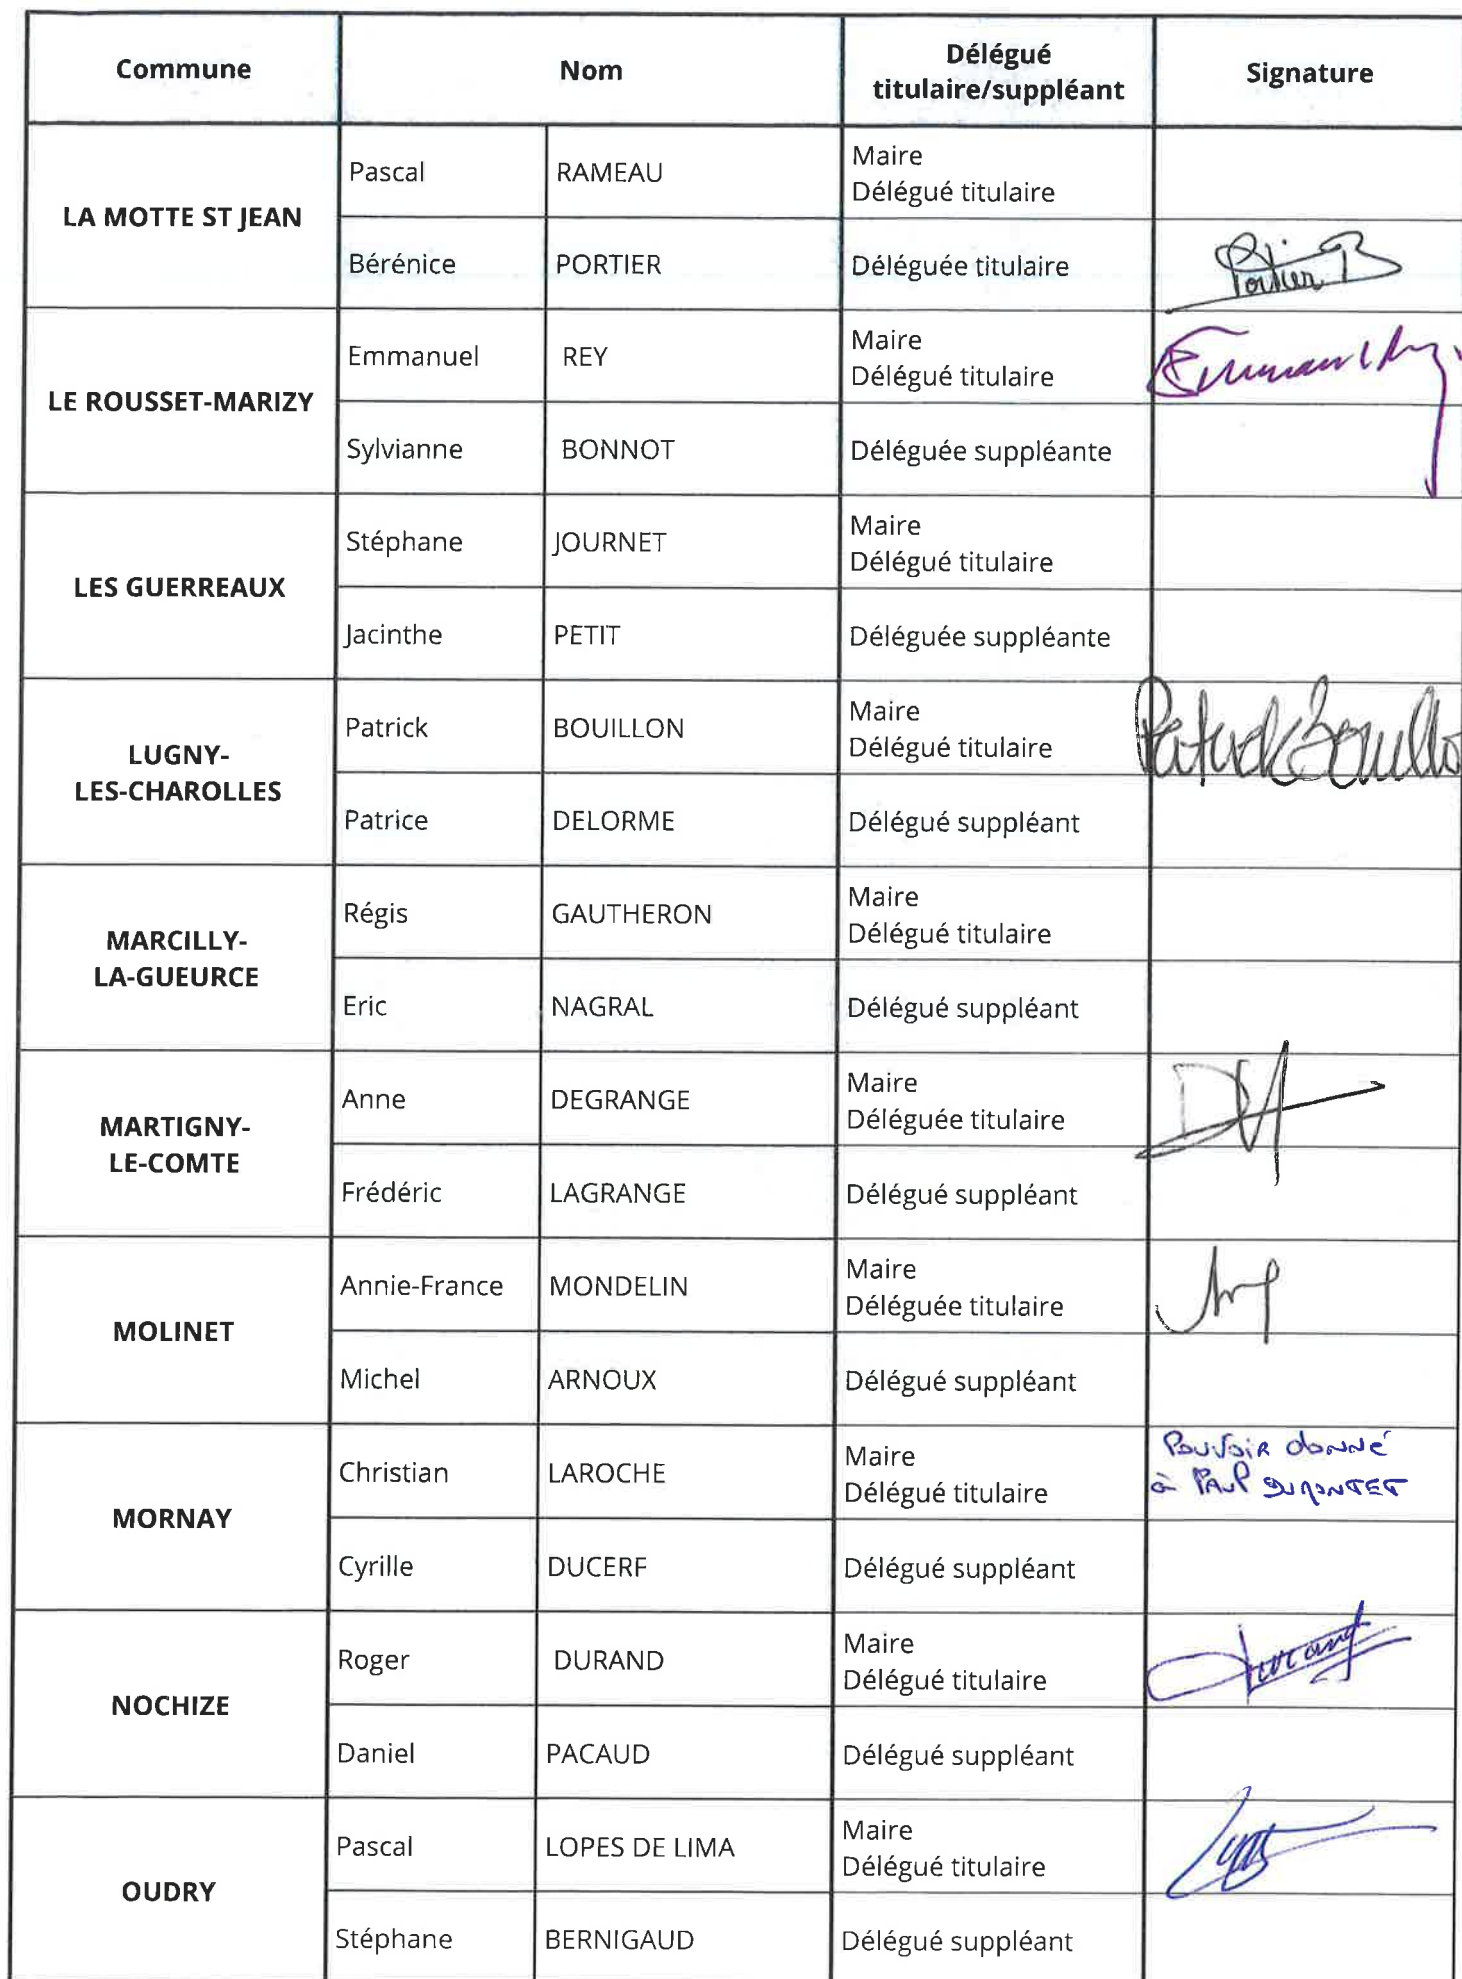 Commune Nom Délégué titulaire/suppléant Signature
LA MOTTE ST JEAN
Pascal RAMEAU Maire
Délégué titulaire
Bérénice PORTIER Déléguée titulaire Portier B
LE ROUSSET-MARIZY
Emmanuel REY Maire
Délégué titulaire
Sylvianne BONNOT Déléguée suppléante
LES GUERREAUX
Stéphane JOURNET Maire
Délégué titulaire
Jacinthe PETIT Déléguée suppléante
LUGNY-
LES-CHAROLLES
Patrick BOUILLON Maire
Délégué titulaire Patrick Bouillo
Patrice DELORME Délégué suppléant
MARCILLY-
LA-GUEURCE
Régis GAUTHERON Maire
Délégué titulaire
Eric NAGRAL Délégué suppléant
MARTIGNY-
LE-COMTE
Anne DEGRANGE Maire
Déléguée titulaire
Frédéric LAGRANGE Délégué suppléant
MOLINET
Annie-France MONDELIN Maire
Déléguée titulaire
Michel ARNOUX Délégué suppléant
MORNAY
Christian LAROCHE Maire
Délégué titulaire
Pouvoir donné
à Paul DUMONTET
Cyrille DUCERF Délégué suppléant
NOCHIZE
Roger DURAND Maire
Délégué titulaire Durand
Daniel PACAUD Délégué suppléant
OUDRY
Pascal LOPES DE LIMA Maire
Délégué titulaire
Stéphane BERNIGAUD Délégué suppléant